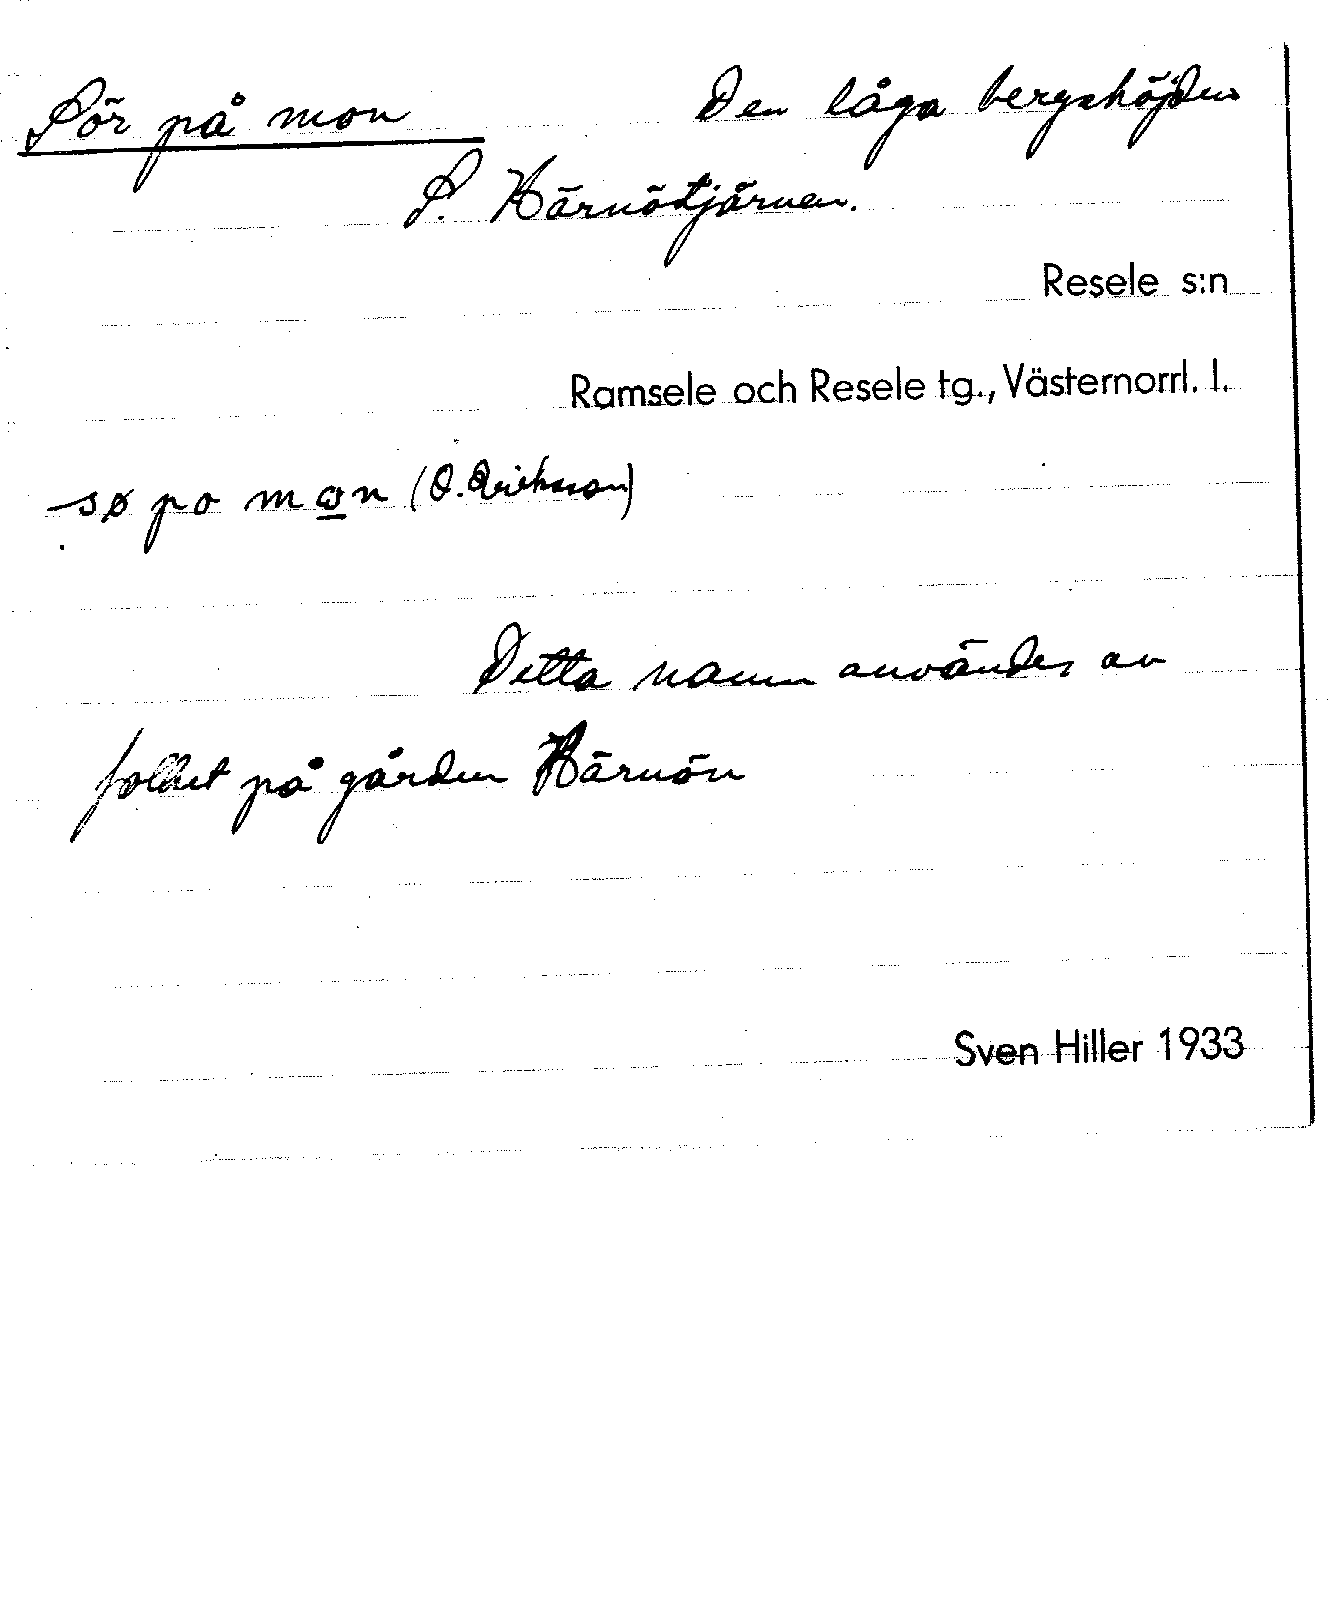 Sör på mon Den låga bergshöjden
S. Härnötjärnen.
Resele s:n
Ramsele och Resele tg., Västernorrl. l.
sø po mon (O. Eriksson)
Detta namn användes av
folket på gården Härnön
Sven Hiller 1933